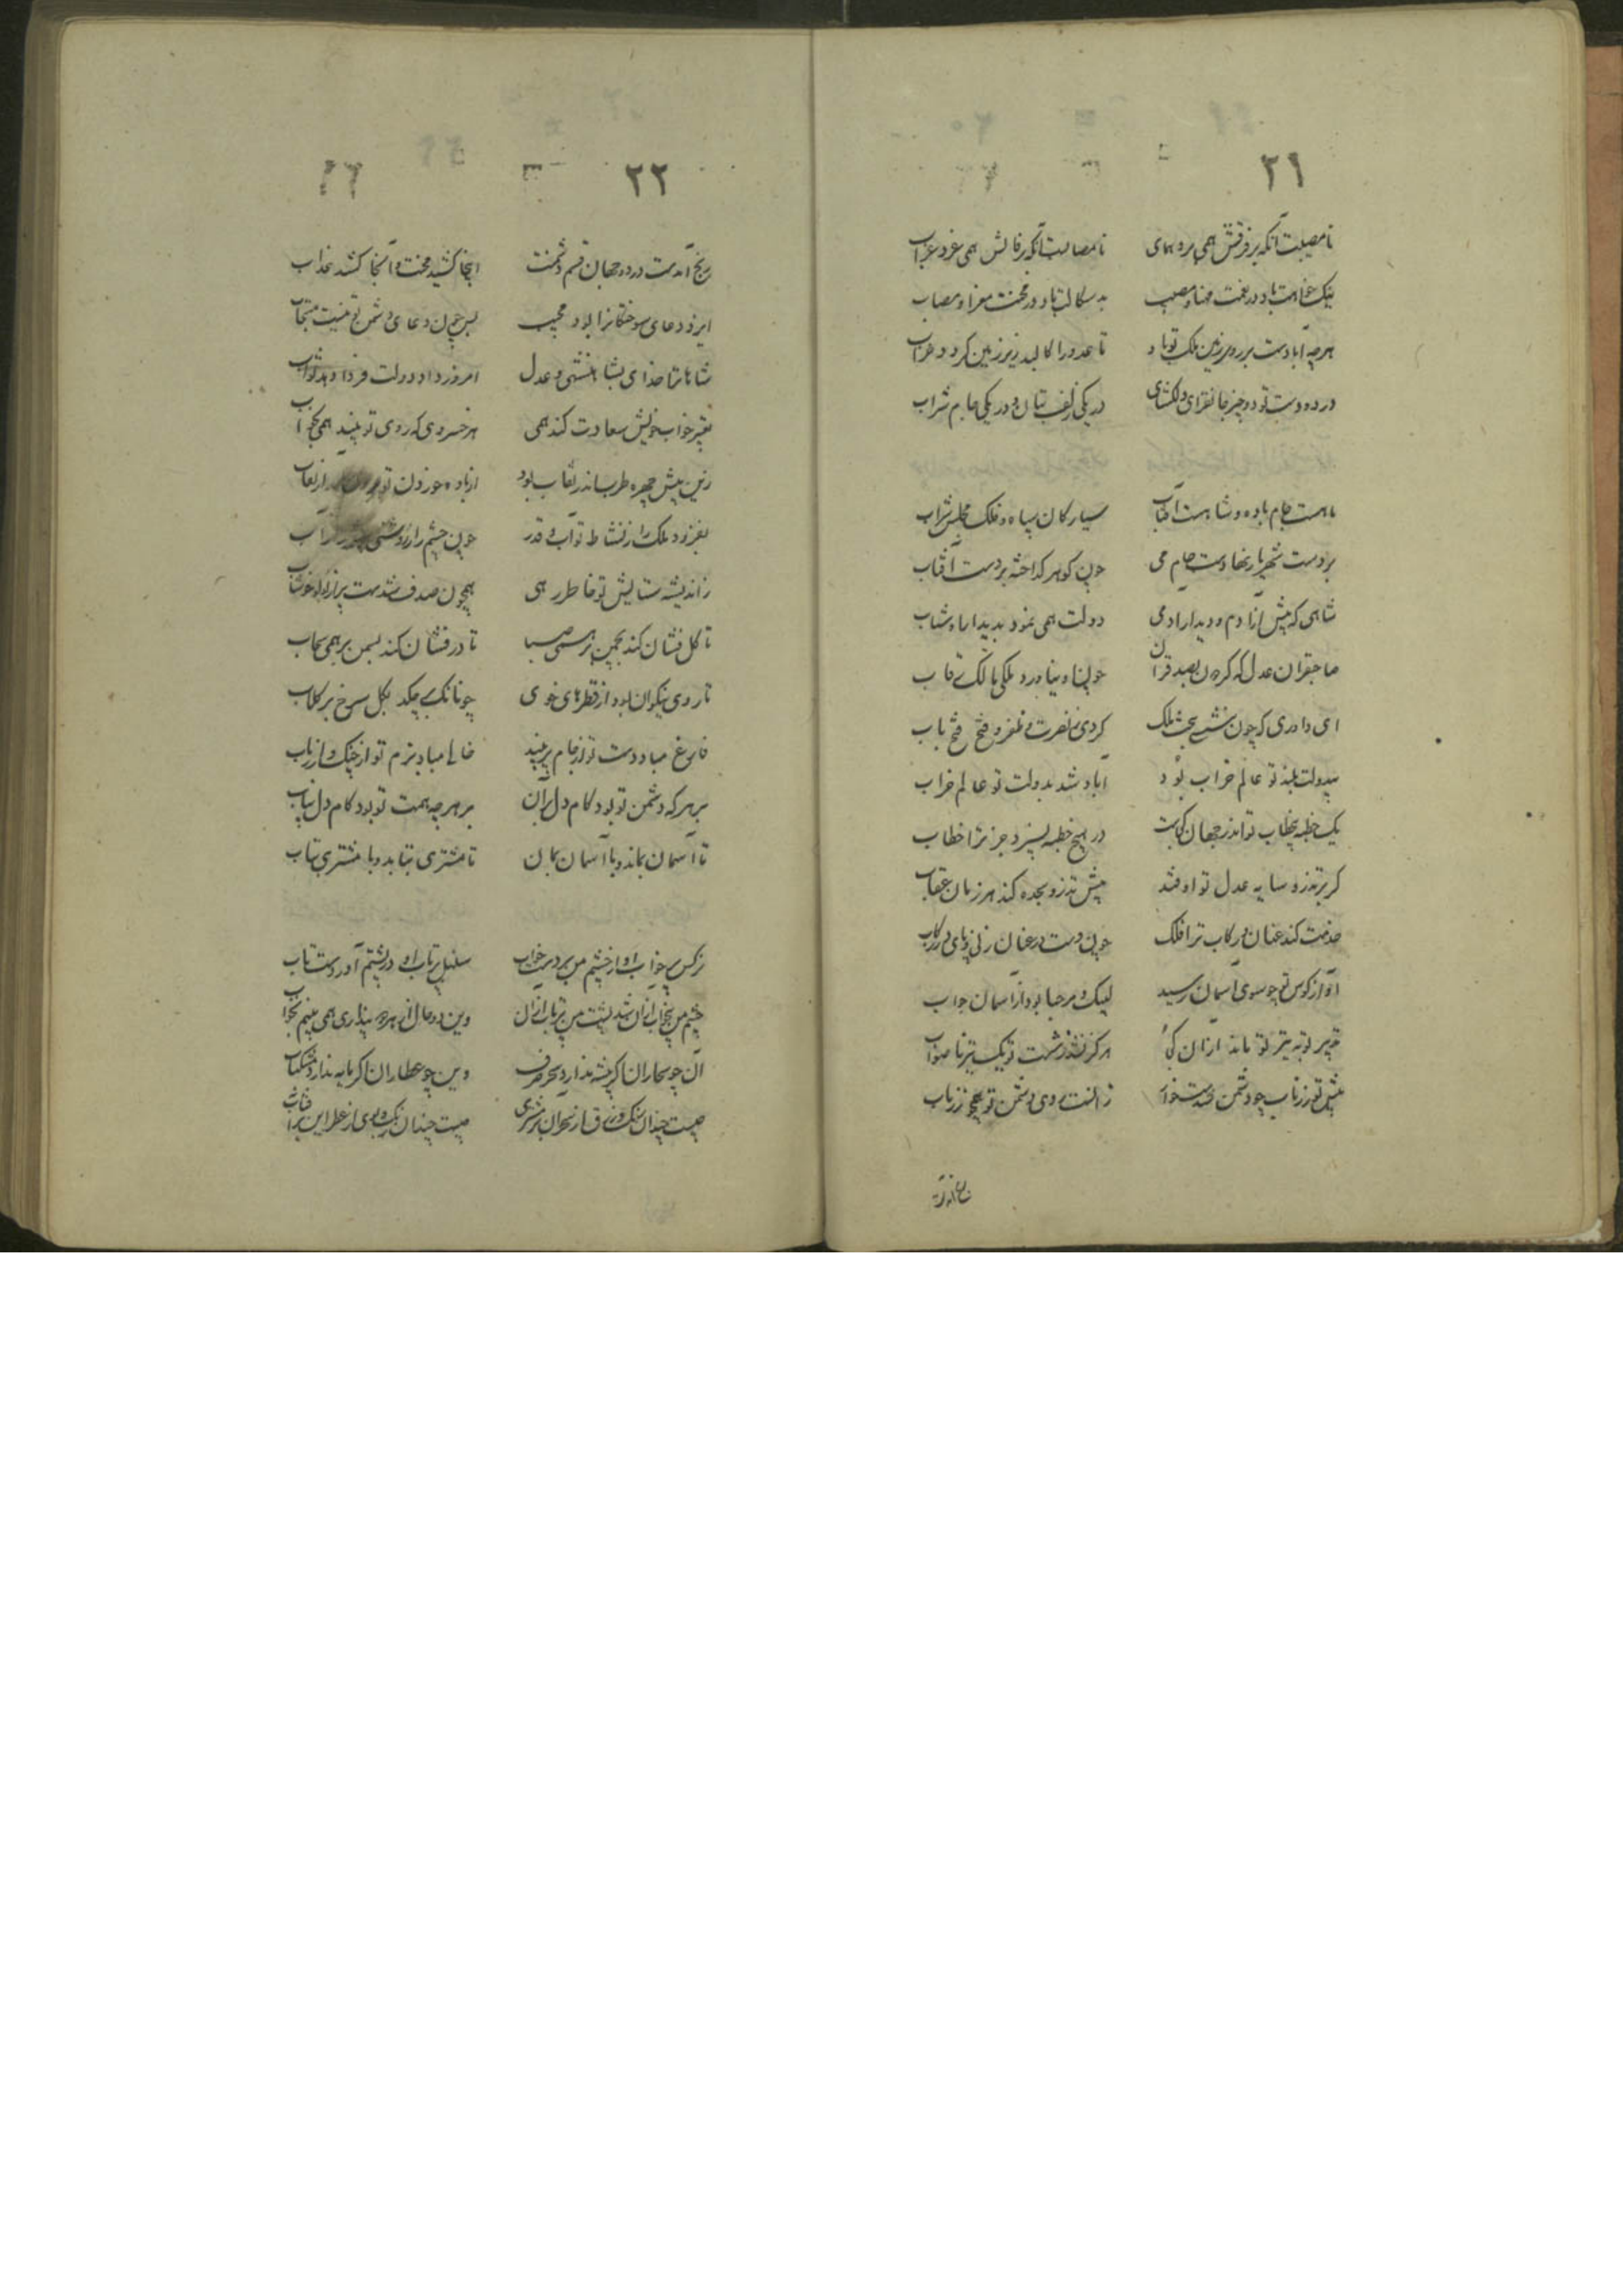 ٢١
تا مصیبت آنکه بر فرقش همی پرد همای تا مصابست آنکه بر فالش همی غرد غراب
نیک خواهت باد در نعمت مهنا و مصیب بد سکالت باد در محنت معزا و مصاب
هرچه آبادست بر روی زمین ملک تو باد تا عدو را کالبد زیر زمین گردد خراب
در دو دست تو دو چیز جانفزای دلگشای در یکی زلف بتان و در یکی جام شراب
ماهست جام باده و شاهست آفتاب سیارکان سپاه و فلک مجلس شراب
بر دست شهریار نهادست جام می چون گوهر گداخته بر دست آفتاب
شاهی که پیش ازآدم و دیدار آدمی دولت همی نمود بدیدار او شتاب
صاحبقران عدل که گردون بصد قران چون او نیاورد ملکی مالک رقاب
ای داوری که چون بنشستی بتخت ملک کردی ز نصرت و ظفر و فتح فتح باب
بیدولت بلند تو عالم خراب بود آباد شد بدولت تو عالم خراب
یک خطبه بیخطاب تو اندر جهان کجاست در هیچ خطبه نیست بجز مر ترا خطاب
گر بر تذرو سایه عدل تو اوفتد پیش تذرو سجده کند هر زمان عقاب
خدمت کند عنان و رکاب ترا فلک چون دست در عنان زنی و پای در رکاب
آواز کوس تو چو سوی آسمان رسید لبیک و مرحبا بود از آسمان جواب
تدبیر تو به تیر تو ماند از آن کجا هرگز نشد ز شست تو یک تیر ناصواب
تیغ تو زر ناب چو دشمن بدست خواست زانست روی دشمن تو همچو زر ناب
رنج آمدست
٢٢
رنج آمدست در دو جهان قسم دشمنت اینجا کشید محنت و آنجا کشد عذاب
ایزد دعای سوختگانرا بود مجیب پس چون دعای دشمن تو نیست مستجاب
شاها ترا خدای بشاهنشهی و عدل امروز داد دولت و فردا دهد ثواب
تعبیر خواب خویش سعادت کند همی هر خسروی که روی تو بیند همی بخواب
زین پیش چهره طرب اندر نقاب بود از باده خوردن تو برون آمد از نقاب
بفزود ملک را ز نشاط تو آب و قدر چون چشم را ز روشنی
ز اندیشه ستایش تو خاطر رهی همچون صدف شدست پر از لؤلؤ خوشاب
تا گل فشان کند بچمن بر همی صبا تا در فشان کند بسمن بر همی سحاب
تا روی نیکوان بود از قطرهای خوی چونانکه برچکد بگل سرخ بر گلاب
فارغ مباد دست تو از جام بر نبید خالی مباد بزم تو از چنگ و از رباب
بر هر که دشمن تو بود کام دل بران بر هرچه همت تو بود کام دل بیاب
تا آسمان بماند و با آسمان بمان تا مشتری بتابد و با مشتری بتاب
نرگس پر خواب او از چشم من بردست خواب سنبل پر تاب او در پشتم آوردست تاب
چشم من بیخواب ازان شد پشت من پرتاب ازان وین دو حال از بهره بیداری همی بینم بخواب
آن چو سحاران اگر پیشه ندارد سحر صرف وین چو عطاران اگر مایه ندارد مشک ناب
چیست چندان رنگ و زرق از سحر آن بر مشتری چیست چندان رنگ و بوی از عطر این بر آفتاب